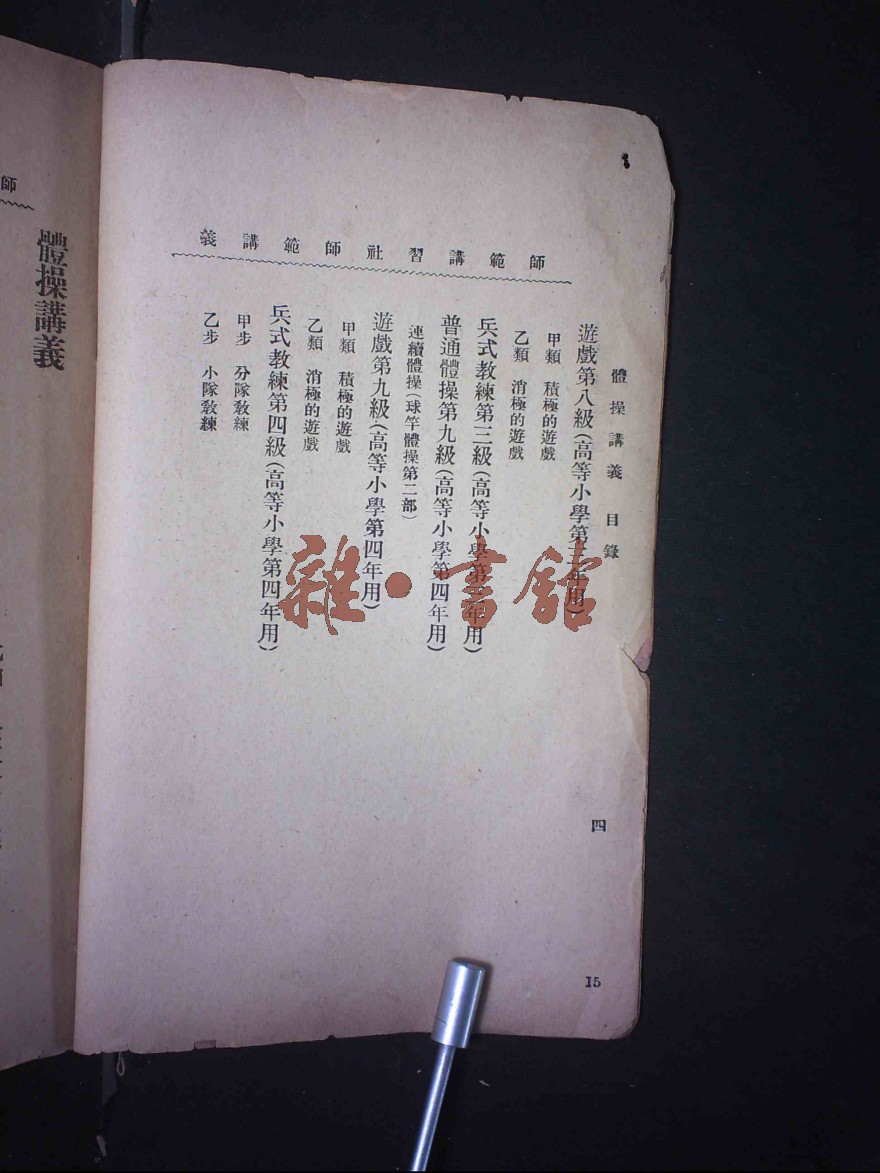 師範講習社師範講義
體操講義 目錄
四
遊戲第八級(高等小學第三年用)
甲類 積極的遊戲
乙類 消極的遊戲
兵式教練第三級(高等小學第三年用)
普通體操第九級(高等小學第四年用)
連續體操(球竿體操第二部)
遊戲第九級(高等小學第四年用)
甲類 積極的遊戲
乙類 消極的遊戲
兵式教練第四級(高等小學第四年用)
甲步 分隊教練
乙步 小隊教練
15
雜·書館
師
體操講義